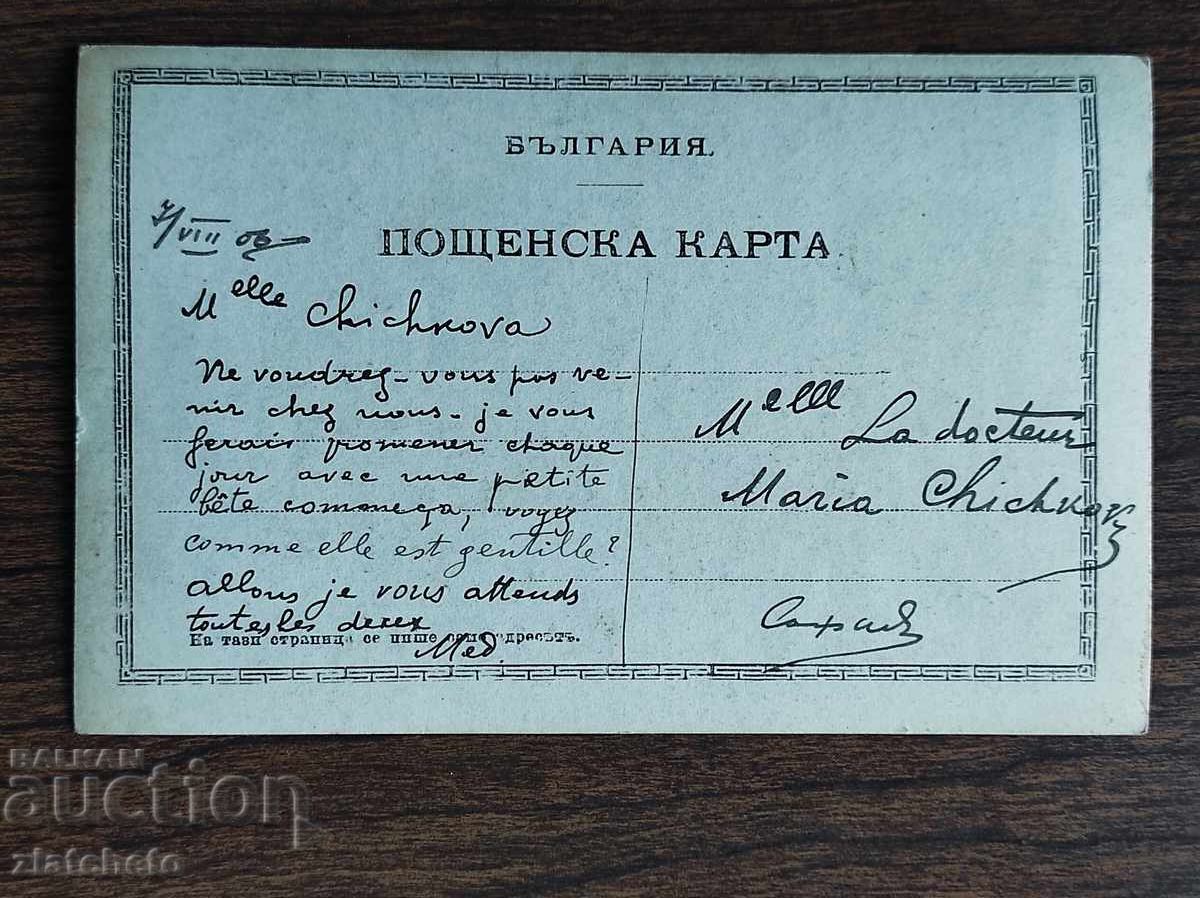 БЪЛГАРИЯ.
ПОЩЕНСКА КАРТА
7/VIII 06
Melle Chichkova
Ne voudrez-vous pas ve-
nir chez nous - je vous
ferais promener chaque
jour avec une petite
bête comme ça, voyez
comme elle est gentille?
allons je vous attends
toutes les deux
Med
На тази страница се пише само адресътъ.
Melle La docteur
Maria Chichkova
София
BALKAN
auction
zlatcheto